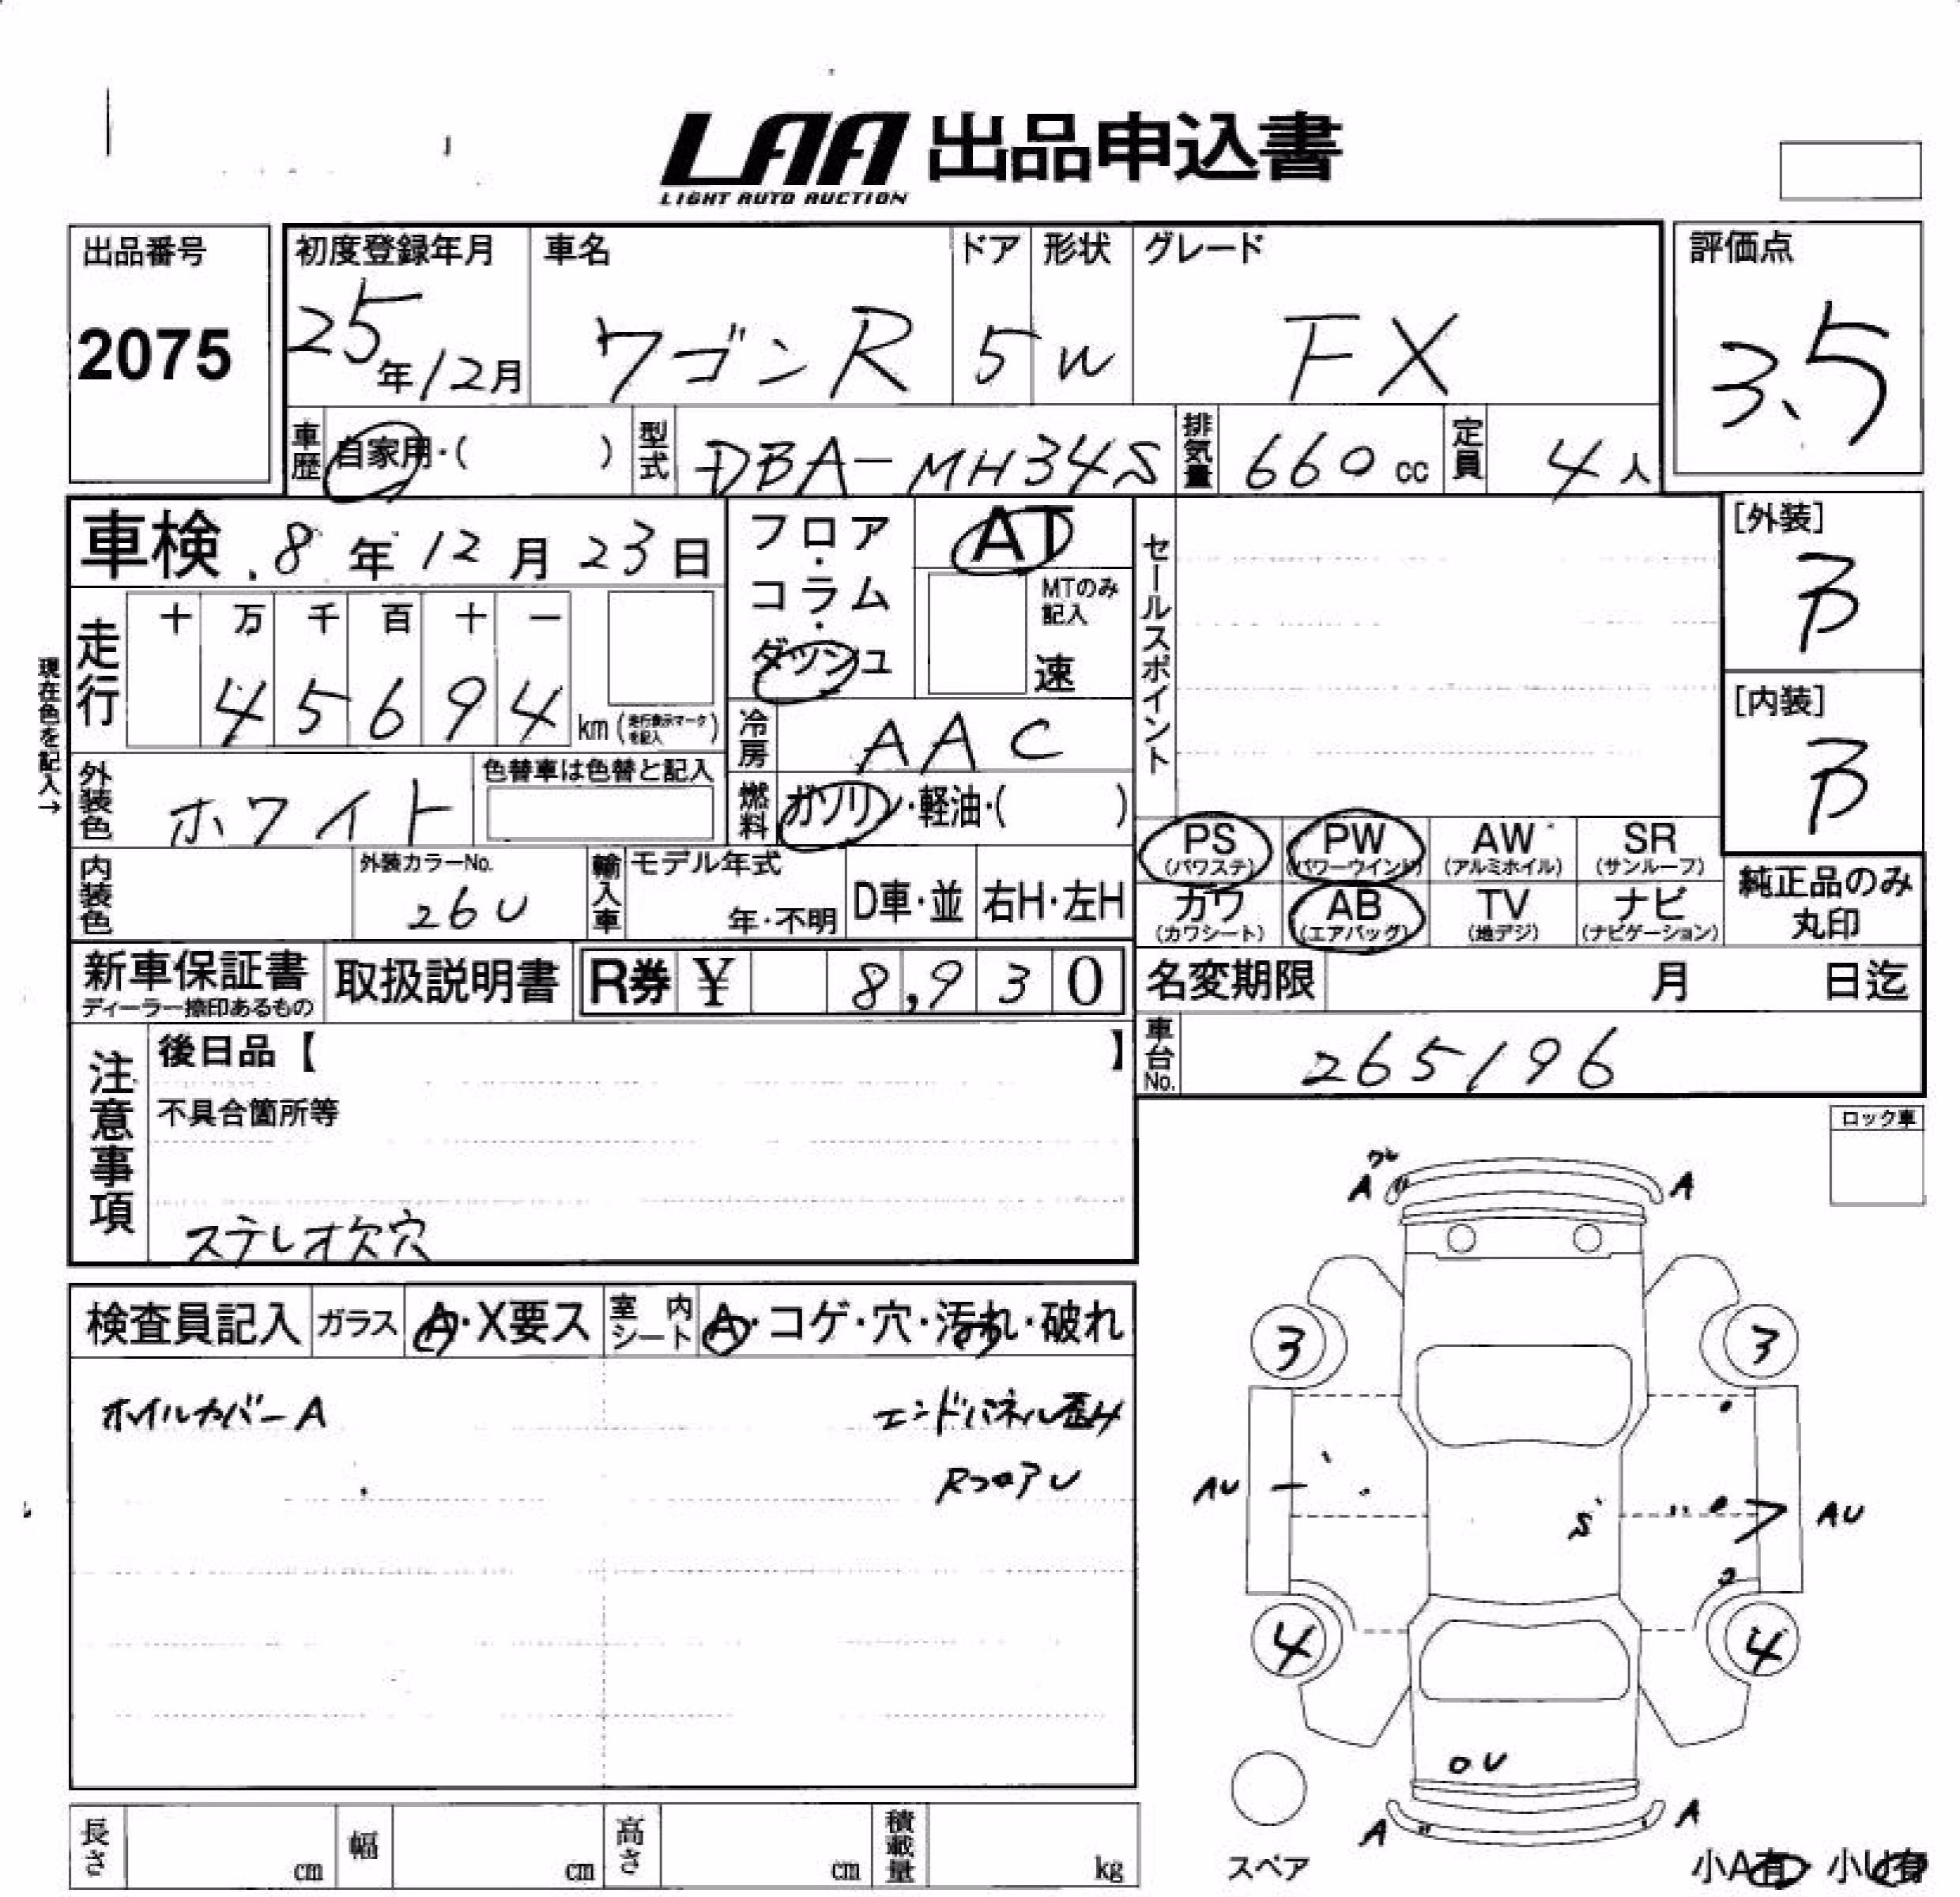 LAA 出品申込書
LIGHT AUTO AUCTION
出品番号 初度登録年月 車名 ドア 形状 グレード 評価点
2075 25年12月 ワゴンR 5 W FX 3.5
車歴 自家用・( ) 型式 DBA-MH34S 排気量 660 cc 定員 4人
車検 8年12月23日 フロア・コラム・ダッシュ AT セールスポイント [外装] B
MTのみ記入 速
現在色を記入→
走行 十 万 千 百 十 一
4 5 6 9 4 km (走行表示マークを記入)
冷房 AAC [内装] B
外装色 ホワイト 色替車は色替と記入 燃料 ガソリン・軽油・( )
PS (パワステ) PW (パワーウインド) AW (アルミホイル) SR (サンルーフ)
内装色 外装カラーNo. 26U 輸入車 モデル年式 年・不明 D車・並 右H・左H
カワ (カワシート) AB (エアバッグ) TV (地デジ) ナビ (ナビゲーション) 純正品のみ丸印
新車保証書 ディーラー捺印あるもの 取扱説明書 R券 ¥ 8,930 名変期限 月 日迄
注意事項 後日品【 】 車台No. 265196
不具合箇所等 ロック車
ステレオ欠穴
検査員記入 ガラス A・X要ス 室内シート A・コゲ・穴・汚れ・破れ
ホイルカバーA エンドパネル歪み
RフロアU
ワレ
A A
3 3
AU S AU
2
4 4
○U
A A
長さ cm 幅 cm 高さ cm 積載量 kg スペア 小A有 小U有